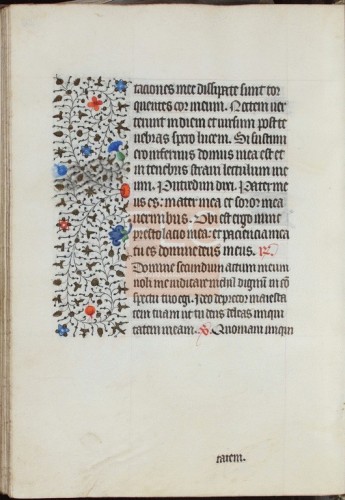 taciones mee dissipate sunt tor
quentes cor meum. Noctem ver
terunt in diem et rursum post te
nebras spero lucem. Si sustinu
ero infernus domus mea est et
in tenebris stravi lectulum me
um. Putredini dixi. Pater me
us es: mater mea et soror mea
vermibus. Ubi est ergo nunc
prestolacio mea: et paciencia mea
tu es domine deus meus. R
Domine secundum actum meum
noli me iudicare nichil dignum in con
spectu tuo egi. Ideo deprecor maiesta
tem tuam ut tu deus deleas iniqui
tatem meam. V Quoniam iniqui
tatem.